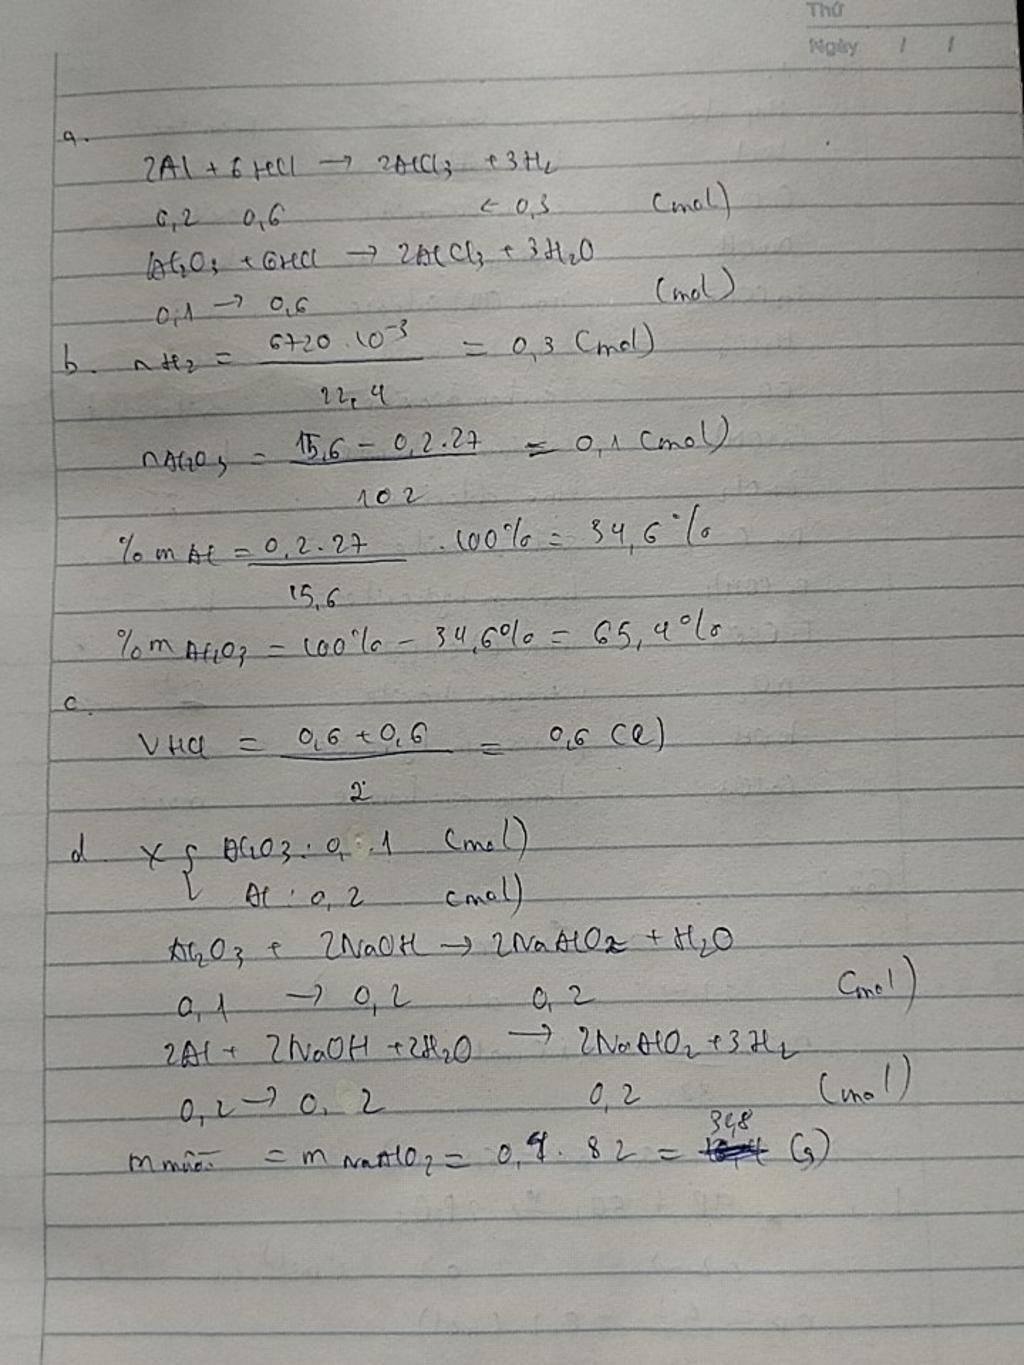 Thứ
Ngày / /
a.
2Al + 6HCl → 2AlCl3 + 3H2
0,2 0,6 ← 0,3 (mol)
Al2O3 + 6HCl → 2AlCl3 + 3H2O
0,1 → 0,6 (mol)
b. nH2 = 6720 . 10^-3 / 22,4 = 0,3 (mol)
nAl2O3 = 15,6 - 0,2.27 / 102 = 0,1 (mol)
% m Al = 0,2.27 / 15,6 . 100% = 34,6%
% m Al2O3 = 100% - 34,6% = 65,4%
c.
VHCl = 0,6 + 0,6 / 2 = 0,6 (l)
d. X { Al2O3 : 0,1 (mol)
Al : 0,2 (mol)
Al2O3 + 2NaOH → 2NaAlO2 + H2O
0,1 → 0,2 0,2 (mol)
2Al + 2NaOH + 2H2O → 2NaAlO2 + 3H2
0,2 → 0,2 0,2 (mol)
m muối = m NaAlO2 = 0,4 . 82 = (g)